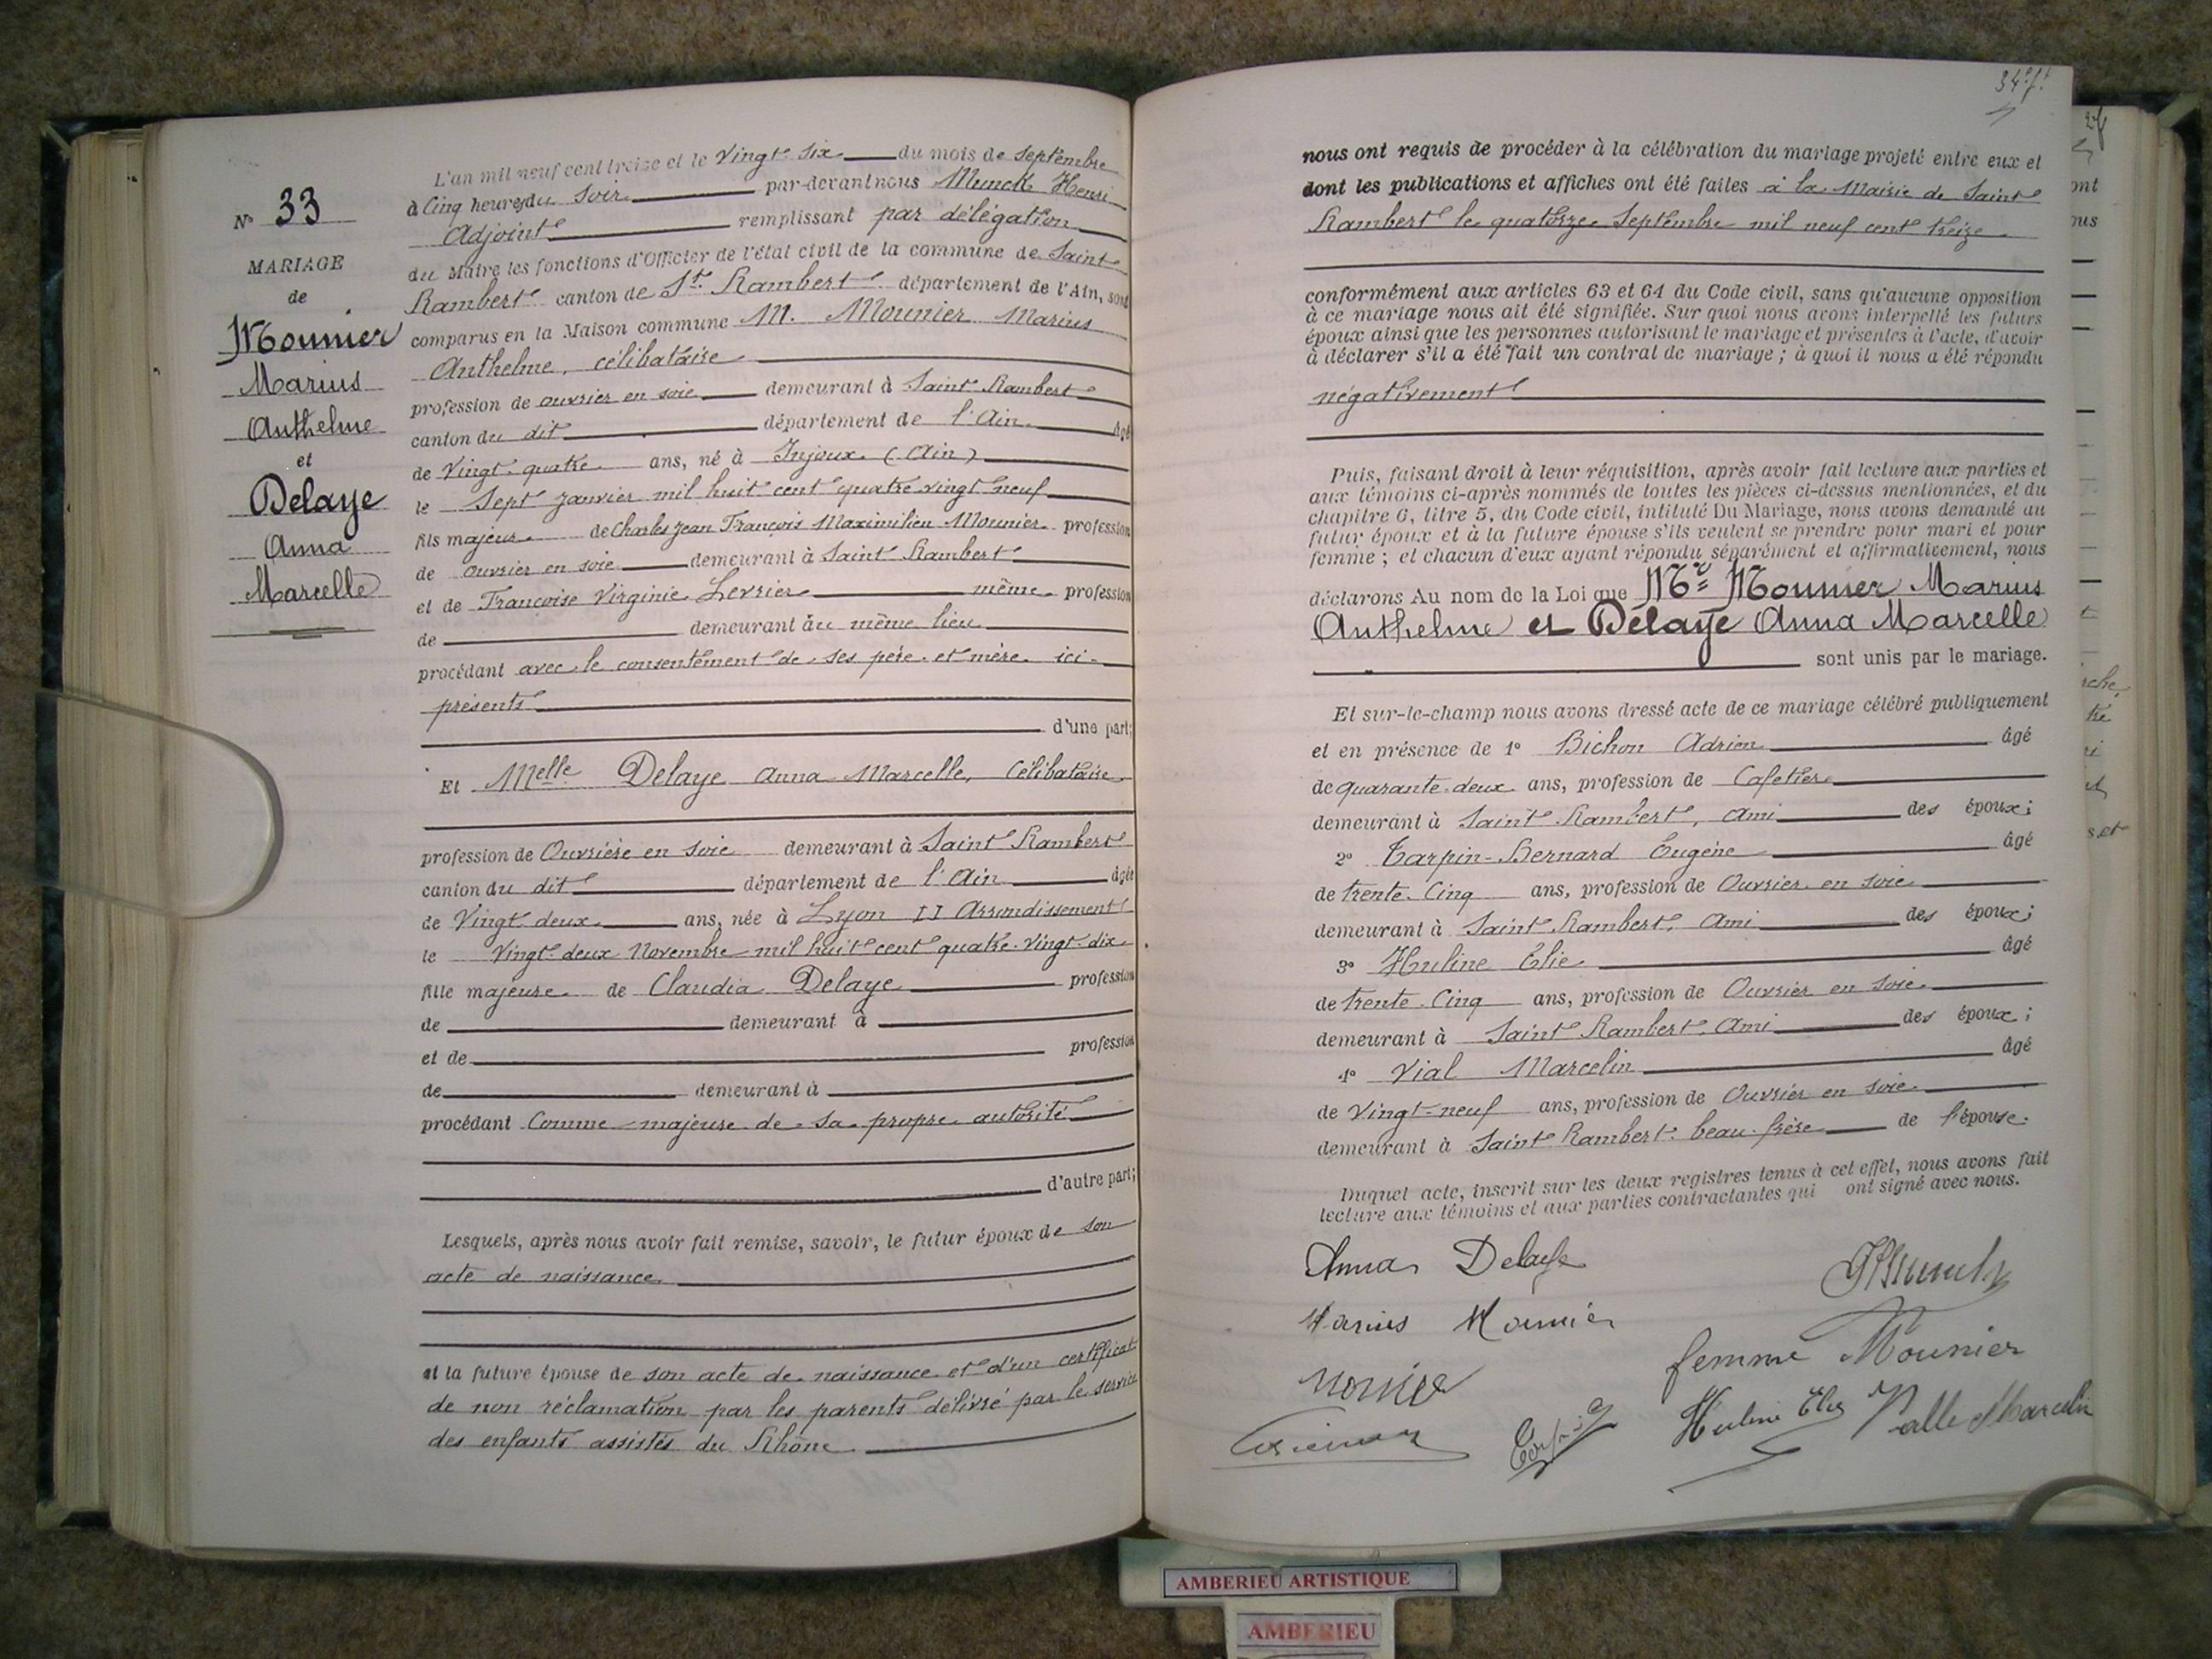 N° 33
MARIAGE
de
Mounier
Marius
Anthelme
et
Delaye
Anna
Marcelle
L'an mil neuf cent treize et le vingt-six du mois de septembre
à Cinq heures du soir par-devant nous Munck Henri
Adjoint remplissant par délégation
du Maire les fonctions d'Officier de l'état civil de la commune de Saint
Rambert canton de St. Rambert département de l'Ain, sont
comparus en la Maison commune M. Mounier Marius
Anthelme, célibataire
profession de ouvrier en soie demeurant à Saint Rambert
canton du dit département de l'Ain âgé
de Vingt-quatre ans, né à Injoux (Ain)
le Sept janvier mil huit cent quatre vingt neuf
fils majeur de Charles Jean François Maximilien Mounier profession
de ouvrier en soie demeurant à Saint Rambert
et de Françoise Virginie Levrier même profession
de demeurant au même lieu
procédant avec le consentement de ses père et mère ici
présents
d'une part;
Et Melle Delaye Anna Marcelle, Célibataire
profession de Ouvrière en soie demeurant à Saint Rambert
canton du dit département de l'Ain âgée
de Vingt deux ans, née à Lyon II Arrondissement
le Vingt-deux Novembre mil huit cent quatre-vingt-dix
fille majeure de Claudia Delaye profession
de demeurant à
et de profession
de demeurant à
procédant Comme majeure de sa propre autorité
d'autre part;
Lesquels, après nous avoir fait remise, savoir, le futur époux de son
acte de naissance
et la future épouse de son acte de naissance et d'un certificat
de non réclamation par les parents délivré par le service
des enfants assistés du Rhône
nous ont requis de procéder à la célébration du mariage projeté entre eux et
dont les publications et affiches ont été faites à la Mairie de Saint
Rambert le quatorze Septembre mil neuf cent treize
conformément aux articles 63 et 64 du Code civil, sans qu'aucune opposition
à ce mariage nous ait été signifiée. Sur quoi nous avons interpellé les futurs
époux ainsi que les personnes autorisant le mariage et présentes à l'acte, d'avoir
à déclarer s'il a été fait un contrat de mariage ; à quoi il nous a été répondu
négativement
Puis, faisant droit à leur réquisition, après avoir fait lecture aux parties et
aux témoins ci-après nommés de toutes les pièces ci-dessus mentionnées, et du
chapitre 6, titre 5, du Code civil, intitulé Du Mariage, nous avons demandé au
futur époux et à la future épouse s'ils veulent se prendre pour mari et pour
femme ; et chacun d'eux ayant répondu séparément et affirmativement, nous
déclarons Au nom de la Loi que Mounier Marius
Anthelme et Delaye Anna Marcelle
sont unis par le mariage.
Et sur-le-champ nous avons dressé acte de ce mariage célébré publiquement
et en présence de 1° Bichon Adrien âgé
de quarante-deux ans, profession de Cafetier
demeurant à Saint Rambert, ami des époux;
2° Tarpin-Bernard Eugène âgé
de trente-Cinq ans, profession de Ouvrier en soie
demeurant à Saint Rambert, Ami des époux;
3° Huline Elie âgé
de trente-Cinq ans, profession de Ouvrier en soie
demeurant à Saint Rambert, Ami des époux;
4° Vial Marcelin âgé
de Vingt-neuf ans, profession de Ouvrier en soie
demeurant à Saint Rambert beau-frère de l'épouse.
Duquel acte, inscrit sur les deux registres tenus à cet effet, nous avons fait
lecture aux témoins et aux parties contractantes qui ont signé avec nous.
Anna Delaye
Marius Mounier
femme Mounier
Huline Elie
Marcelin
AMBERIEU ARTISTIQUE
AMBERIEU